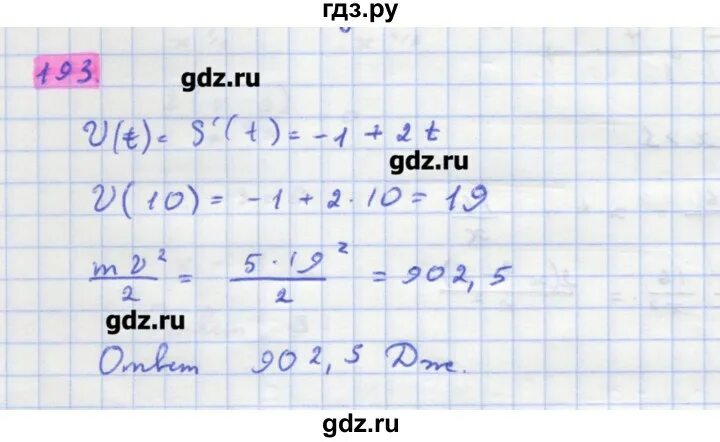 гдз.ру
193.
gdz.ru
V(t) = S'(t) = -1 + 2t
gdz.ru
V(10) = -1 + 2·10 = 19
mv²/2 = 5·19²/2 = 902,5
gdz.ru
Ответ 902,5 Дж.
gdz.ru